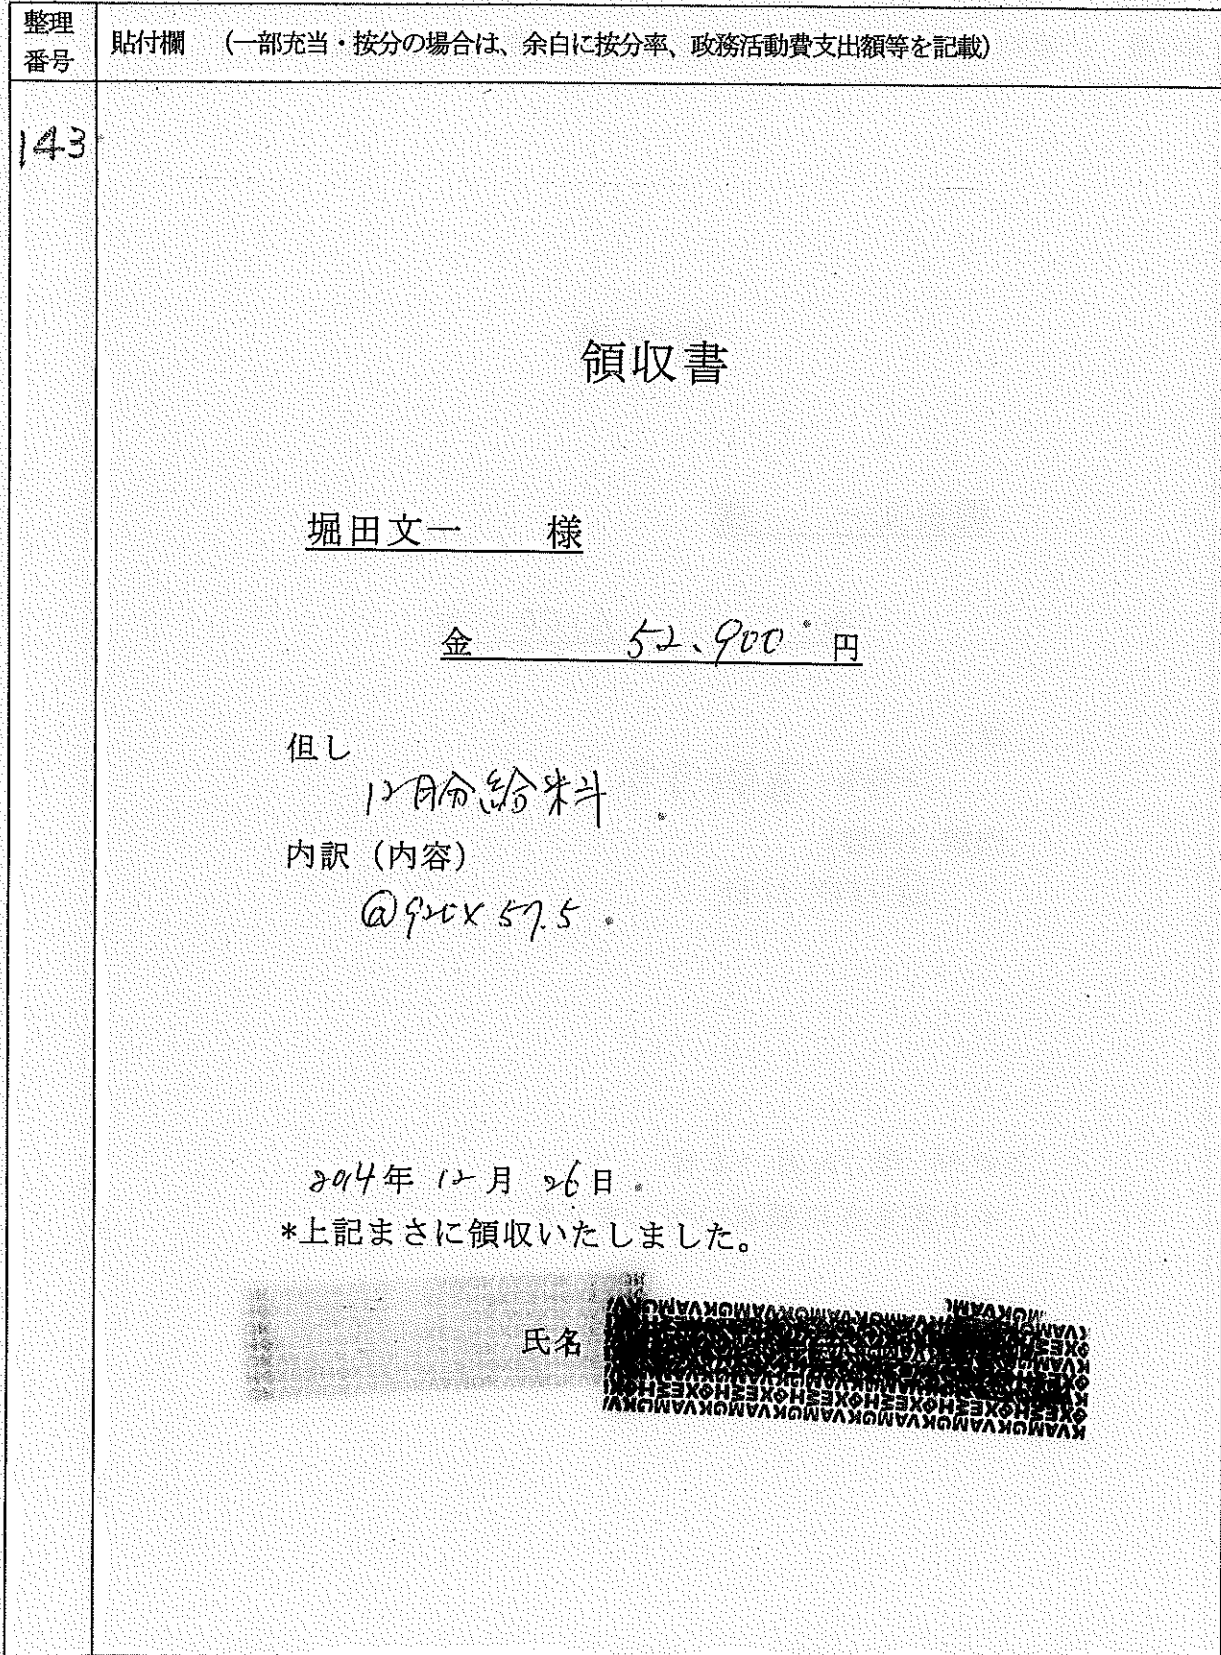 整理
番号
貼付欄 (一部充当・按分の場合は、余白に按分率、政務活動費支出額等を記載)
143
領収書
堀田文一 様
金 52,900 円
但し
12月分給料
内訳（内容）
@920×57.5
2014年 12月 26日
*上記まさに領収いたしました。
氏名